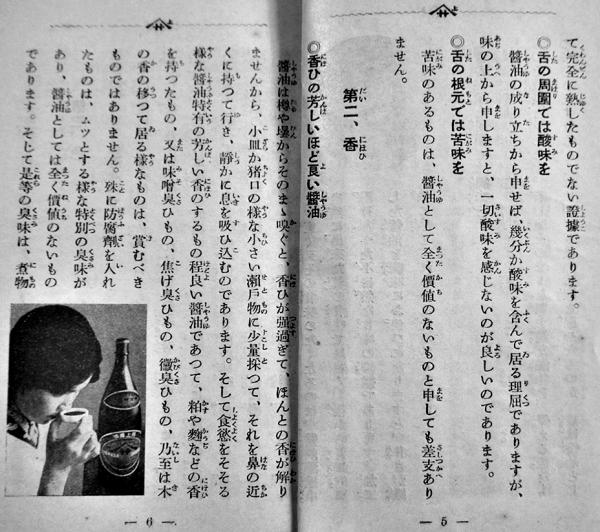 て完全に熟したものでない證據であります。
◎舌の周圍では酸味を
醬油の成り立ちから申せば、幾分か酸味を含んで居る理屈でありますが、
味の上から申しますと、一切酸味を感じないのが良しいのであります。
◎舌の根元では苦味を
苦味のあるものは、醬油として全く價値のないものと申しても差支あり
ません。
第二、香
◎香ひの芳しいほど良い醬油
醬油は樽や壜からそのまゝ嗅ぐと、香ひが强過ぎて、ほんとの香が解り
ませんから、小皿か猪口の様な小さい瀨戶物に少量採つて、それを鼻の近
くに持つて行き、靜かに息を吸ひ込むのであります。そして食慾をそそる
樣な醬油特有の芳しい香のするもの程良い醬油であつて、粕や麴などの香
を持つたもの、又は味噌臭ひもの、焦げ臭ひもの、黴臭ひもの、乃至は木
の香の移つて居る樣なものは、賞むべき
ものではありません。殊に防腐劑を入れ
たものは、ムツとする樣な特別の臭味が
あり、醬油としては全く價値のないもの
であります。そして是等の臭味は、煮物
— 5 —
— 6 —